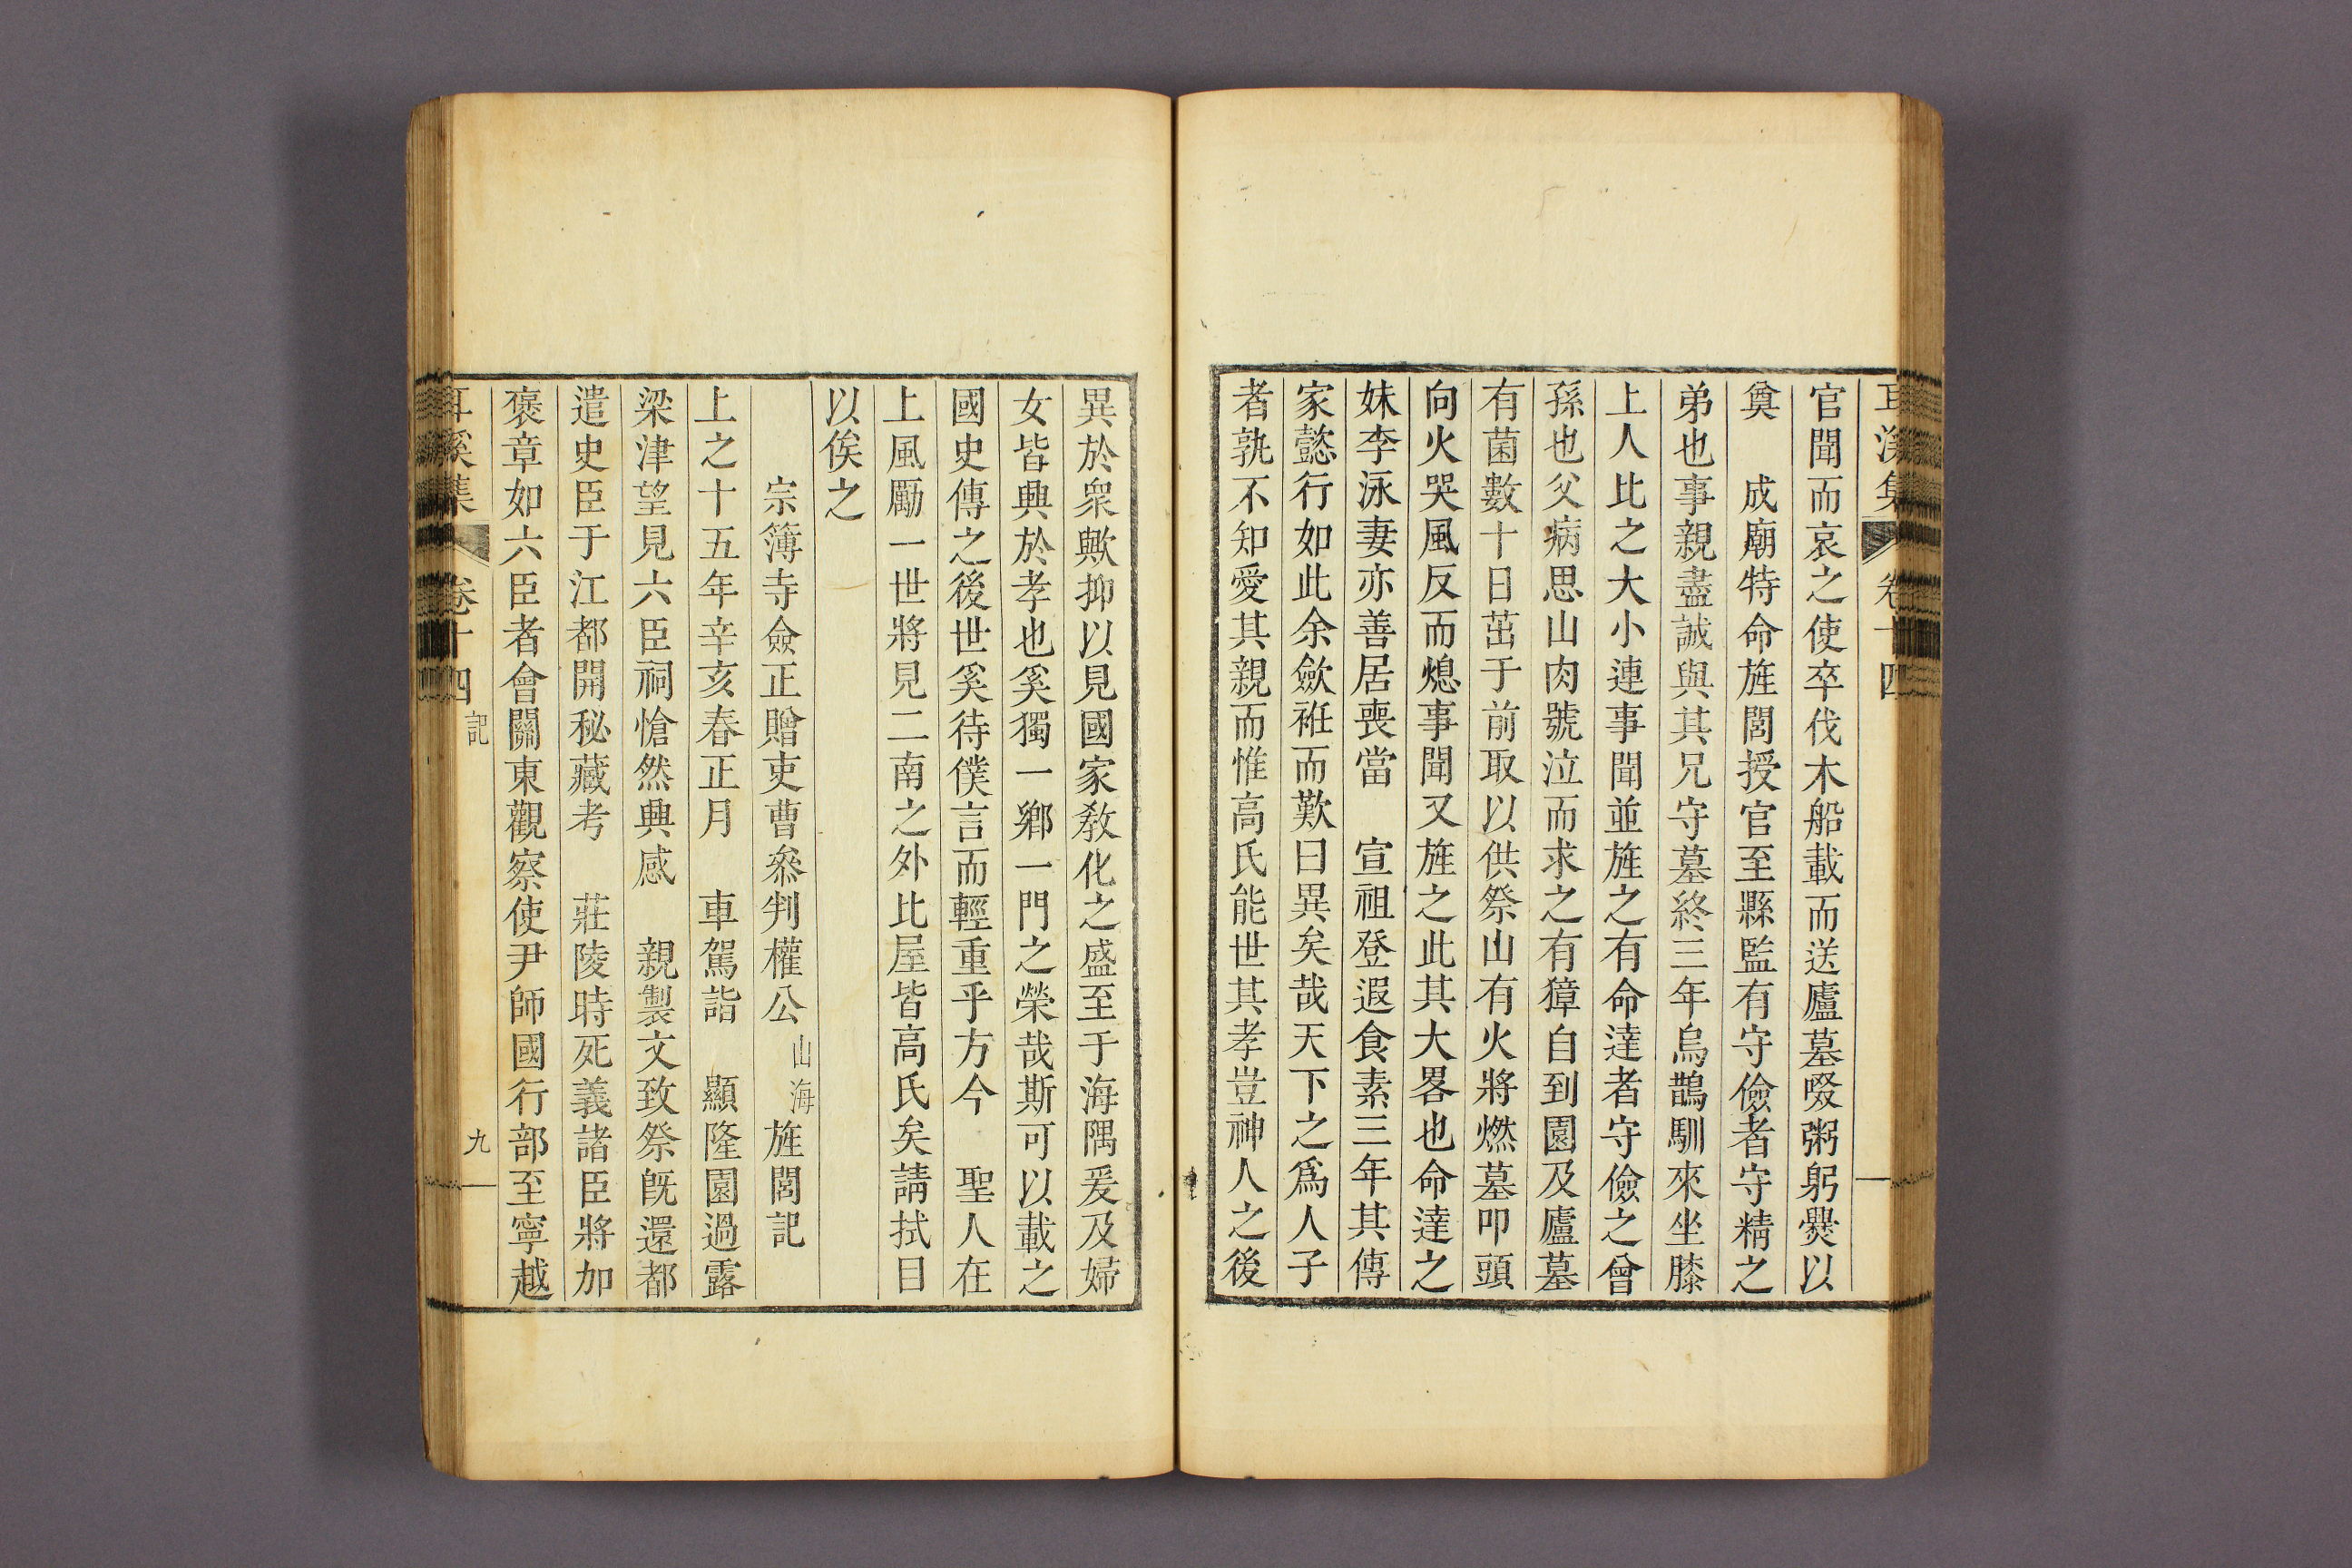 耳溪集 卷十四
官聞而哀之使卒伐木船載而送廬墓啜粥躬爨以
奠 成廟特命旌閭授官至縣監有守儉者守精之
弟也事親盡誠與其兄守墓終三年烏鵲馴來坐膝
上人比之大小連事聞並旌之有命達者守儉之曾
孫也父病思山肉號泣而求之有獐自到園及廬墓
有菌數十日茁于前取以供祭山有火將燃墓叩頭
向火哭風反而熄事聞又旌之此其大畧也命達之
妹李泳妻亦善居喪當 宣祖登遐食素三年其傳
家懿行如此余歛袵而歎曰異矣哉天下之爲人子
者孰不知愛其親而惟高氏能世其孝豈神人之後
異於衆歟抑以見國家敎化之盛至于海隅爰及婦
女皆興於孝也奚獨一鄕一門之榮哉斯可以載之
國史傳之後世奚待僕言而輕重乎方今 聖人在
上風勵一世將見二南之外比屋皆高氏矣請拭目
以俟之
宗簿寺僉正贈吏曹叅判權公山海旌閭記
上之十五年辛亥春正月 車駕詣 顯隆園過露
梁津望見六臣祠愴然興感 親製文致祭旣還都
遣史臣于江都開秘藏考 莊陵時死義諸臣將加
褒章如六臣者會關東觀察使尹師國行部至寧越
耳溪集 卷十四 記 九